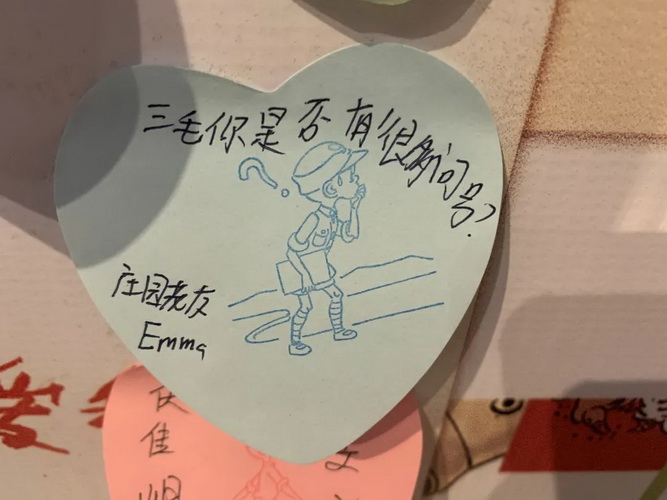 三毛你是否有很多问号?
庄园老友
Emma
佳